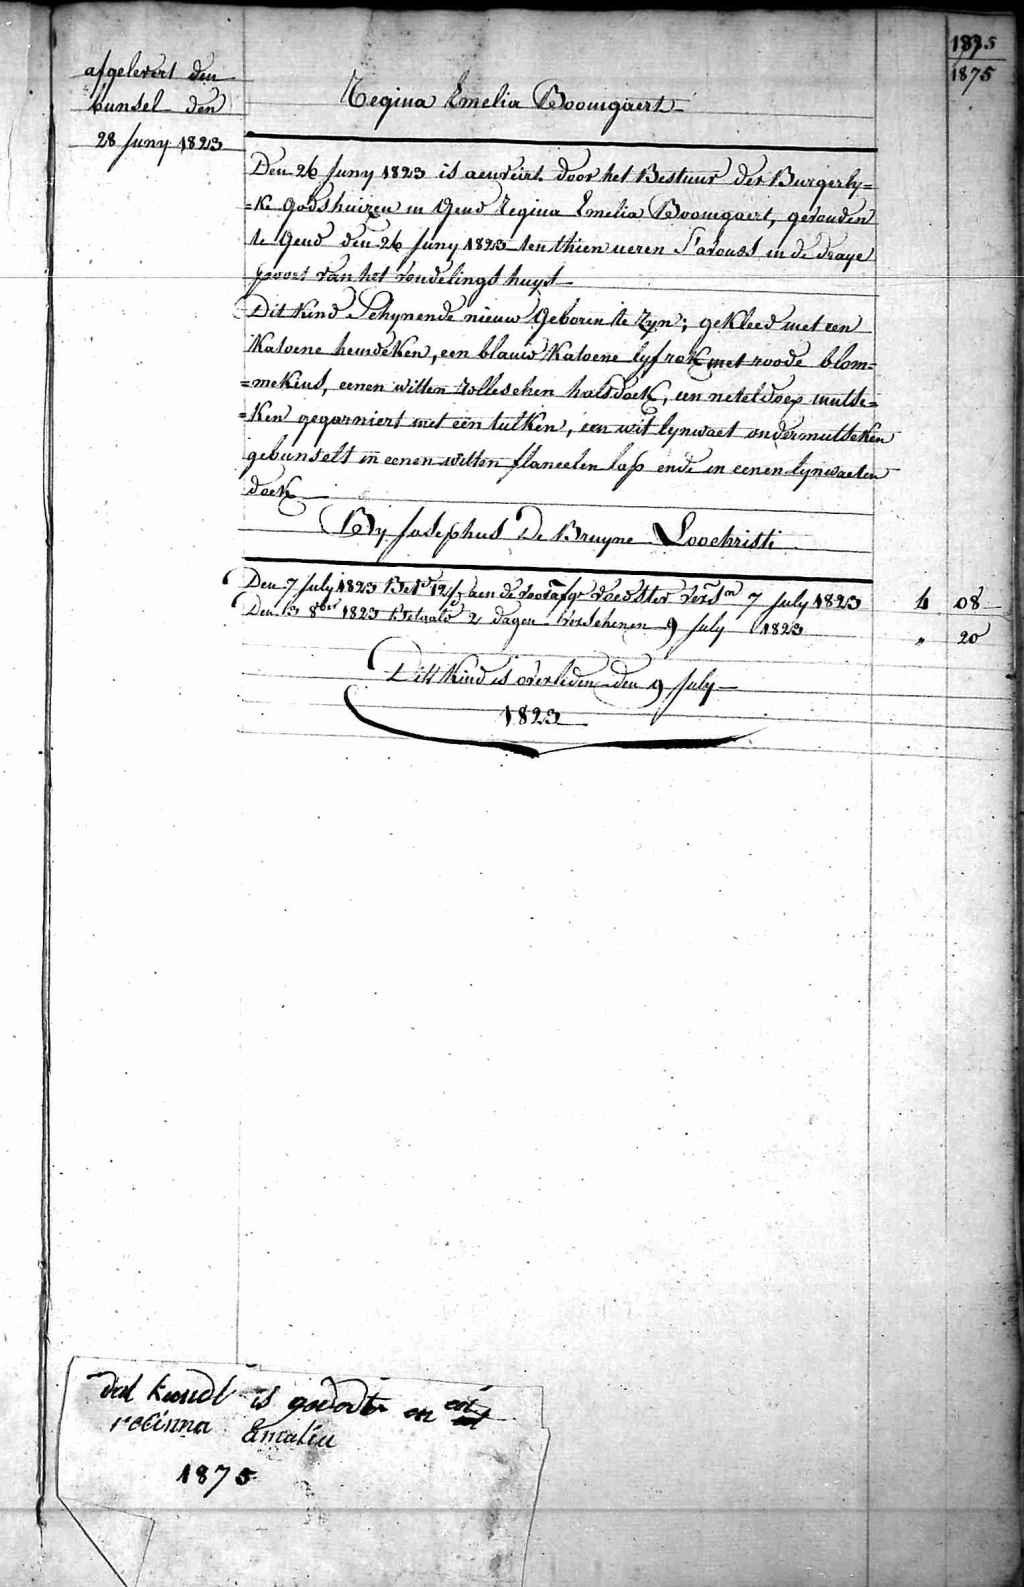 1875
afgelevert den
bunsel den
28 Juny 1823
Regina Emelia Boomgaert
Den 26 Juny 1823 is aenveirt door het Bestuur der Burgerly=
=ke Godshuizen in Gend Regina Emelia Boomgaert, gevonden
te Gend den 26 Juny 1823 ten thien ueren S'avonds in de draye
poort van het vondelings huys
Dit Kind Schynende nieuw Geboren te Zyn; gekleed met een
Katoene hemdeken, een blauw Katoene lyfrok met roode blom=
=mekens, eenen witten halsdoek, een neteldoex mutse=
=ken gegarniert met een tulken, een wit lynwaet ondermutseken
gebunselt in eenen witten flaneelen lap ende in eenen lynwaeten
doek
By Josephus De Bruyne Loochristi
Den 7 July 1823 aen de voedster 7 July 1823 4 08
Den 13 8ber 1823 Betaald 2 dagen verschenen 9 July 1823 " 20
Dit Kind is overleden den 9 July
1823
dat kindt is gedodte en
recinna Emalia
1875